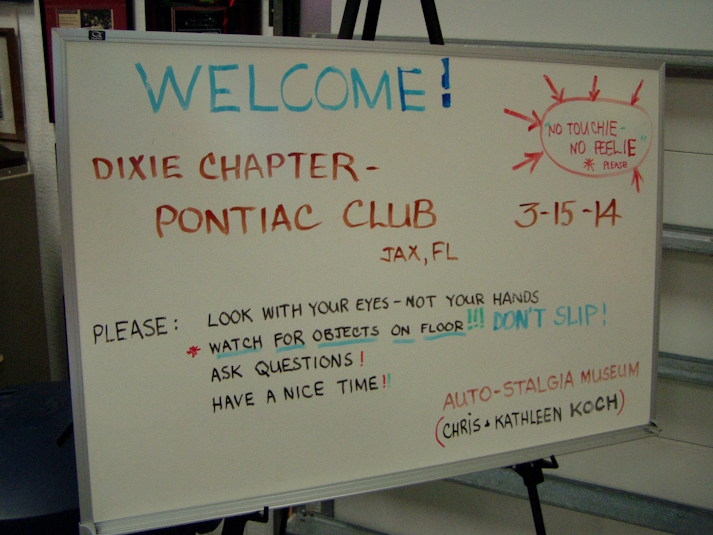 WELCOME!
"NO TOUCHIE -
NO FEELIE"
* PLEASE
DIXIE CHAPTER -
PONTIAC CLUB
3-15-14
JAX, FL
PLEASE: LOOK WITH YOUR EYES - NOT YOUR HANDS
* WATCH FOR OBJECTS ON FLOOR!!! DON'T SLIP!
ASK QUESTIONS!
HAVE A NICE TIME!!
AUTO-STALGIA MUSEUM
(CHRIS + KATHLEEN KOCH)